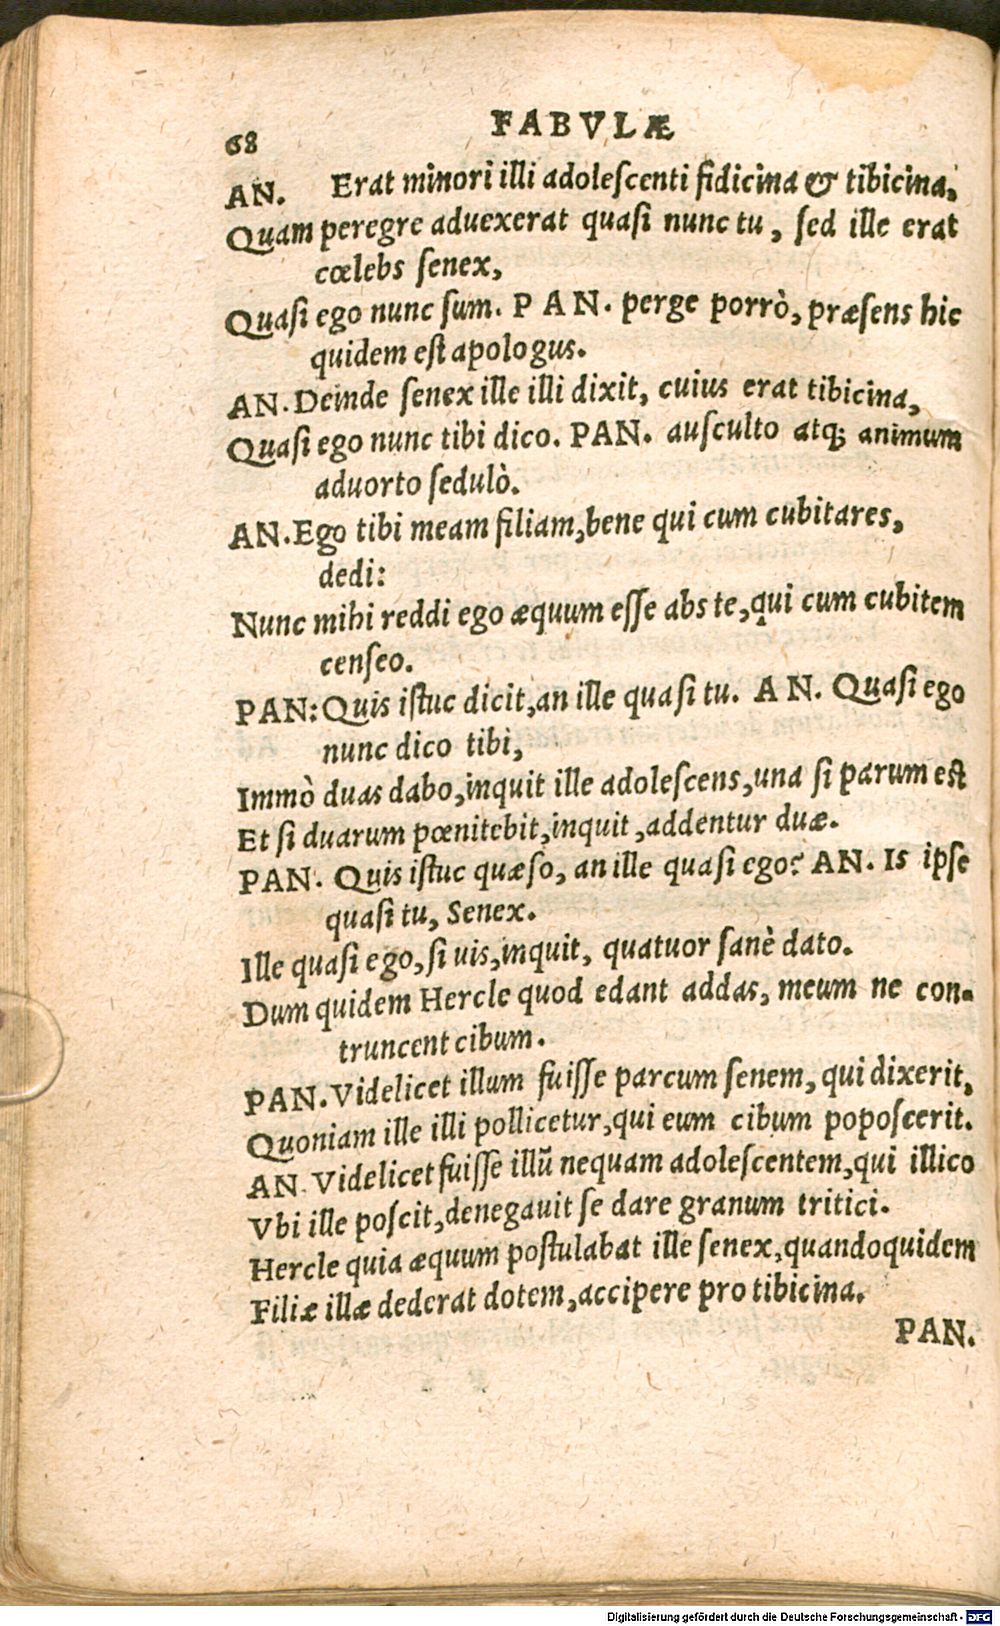 68 FABVLÆ
AN. Erat minori illi adoleſcenti fidicina & tibicina,
Quam peregre aduexerat quaſi nunc tu, ſed ille erat
cœlebs ſenex,
Quaſi ego nunc ſum. PAN. perge porrò, præſens hic
quidem eſt apologus.
AN. Deinde ſenex ille illi dixit, cuius erat tibicina,
Quaſi ego nunc tibi dico. PAN. auſculto atq; animum
aduorto ſedulò.
AN. Ego tibi meam filiam, bene qui cum cubitares,
dedi:
Nunc mihi reddi ego æquum eſſe abs te, qui cum cubitem
cenſeo.
PAN: Quis iſtuc dicit, an ille quaſi tu. AN. Quaſi ego
nunc dico tibi,
Immò duas dabo, inquit ille adoleſcens, una ſi parum eſt
Et ſi duarum pœnitebit, inquit, addentur duæ.
PAN. Quis iſtuc quæſo, an ille quaſi ego? AN. Is ipſe
quaſi tu, Senex.
Ille quaſi ego, ſi uis, inquit, quatuor ſanè dato.
Dum quidem Hercle quod edant addas, meum ne con-
truncent cibum.
PAN. Videlicet illum fuiſſe parcum ſenem, qui dixerit,
Quoniam ille illi pollicetur, qui eum cibum popoſcerit.
AN. Videlicet fuiſſe illū nequam adoleſcentem, qui illico
Vbi ille poſcit, denegauit ſe dare granum tritici.
Hercle quia æquum poſtulabat ille ſenex, quandoquidem
Filiæ illæ dederat dotem, accipere pro tibicina.
PAN.
Digitalisierung gefördert durch die Deutsche Forschungsgemeinschaft - DFG